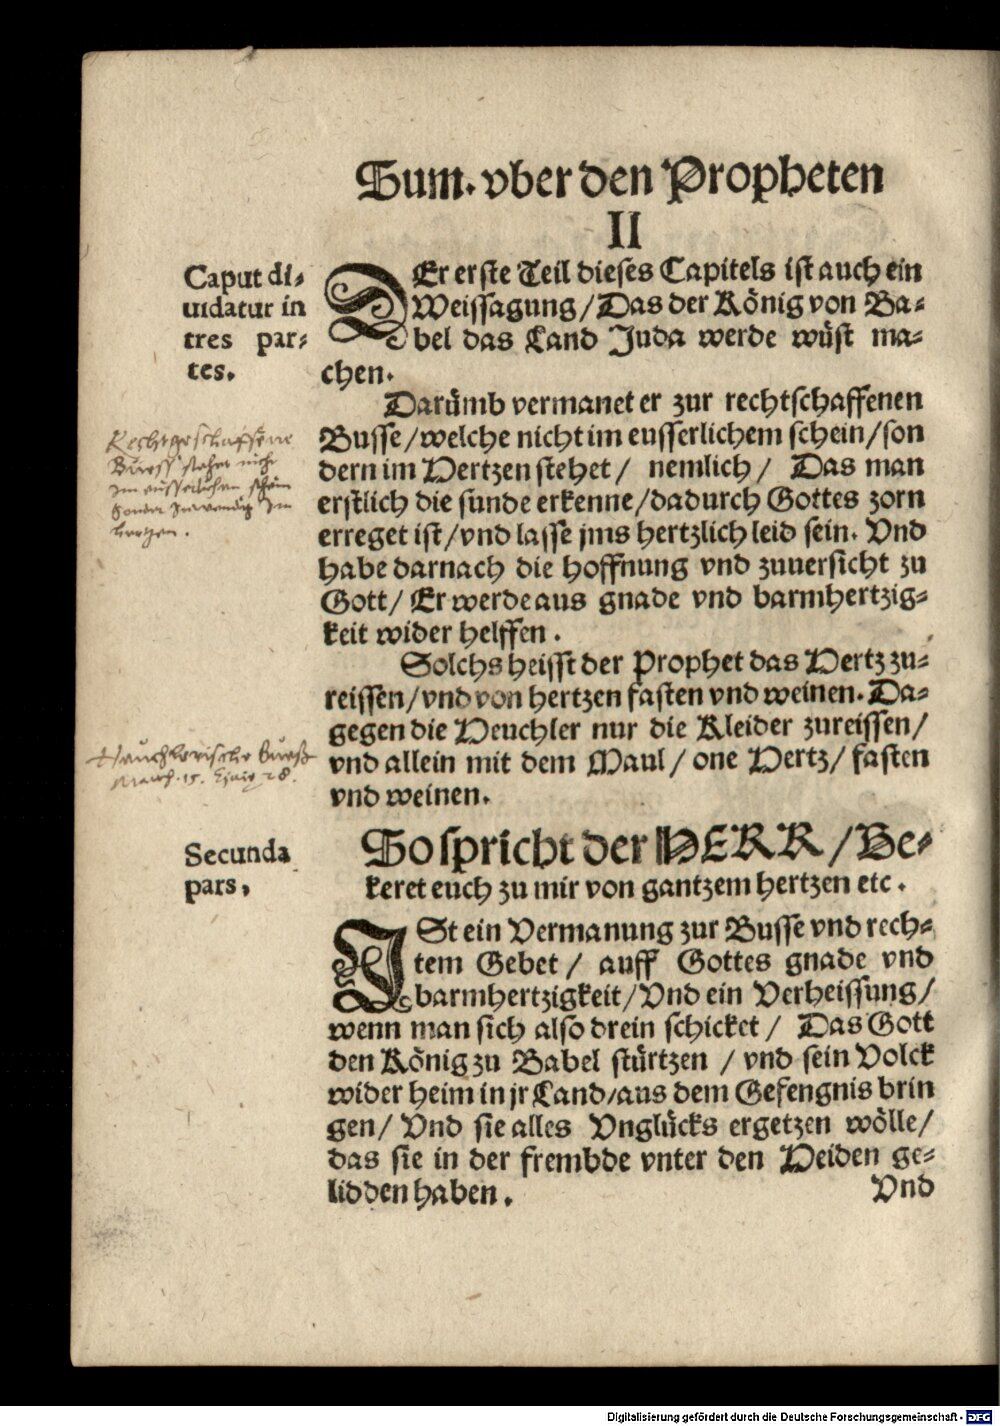 Sum. vber den Propheten
II
Caput di-
uidatur in
tres par-
tes.
DEr erste Teil dieses Capitels ist auch ein
Weissagung / Das der König von Ba-
bel das Land Juda werde wüst ma-
chen.
Darümb vermanet er zur rechtschaffenen
Busse / welche nicht im eusserlichem schein / son
dern im Hertzen stehet / nemlich / Das man
erstlich die sunde erkenne / dadurch Gottes zorn
erreget ist / vnd lasse jms hertzlich leid sein. Vnd
habe darnach die hoffnung vnd zuuersicht zu
Gott / Er werde aus gnade vnd barmhertzig-
keit wider helffen.
Rechtgeschaffene
Buess stehet nicht
im eusserlichen schein
sonder inwendig im
hertzen.
Solchs heisst der Prophet das Hertz zu-
reissen / vnd von hertzen fasten vnd weinen. Da-
gegen die Heuchler nur die Kleider zureissen /
vnd allein mit dem Maul / one Hertz / fasten
vnd weinen.
Heuchlerische buess
Math. 15.
So spricht der HERR / Be-
keret euch zu mir von gantzem hertzen etc.
Secunda
pars.
ISt ein Vermanung zur Busse vnd rech-
tem Gebet / auff Gottes gnade vnd
barmhertzigkeit / Vnd ein Verheissung /
wenn man sich also drein schicket / Das Gott
den König zu Babel stürtzen / vnd sein Volck
wider heim in jr Land / aus dem Gefengnis brin
gen / Vnd sie alles Vnglücks ergetzen wölle /
das sie in der frembde vnter den Heiden ge-
lidden haben.
Vnd
Digitalisierung gefördert durch die Deutsche Forschungsgemeinschaft - DFG